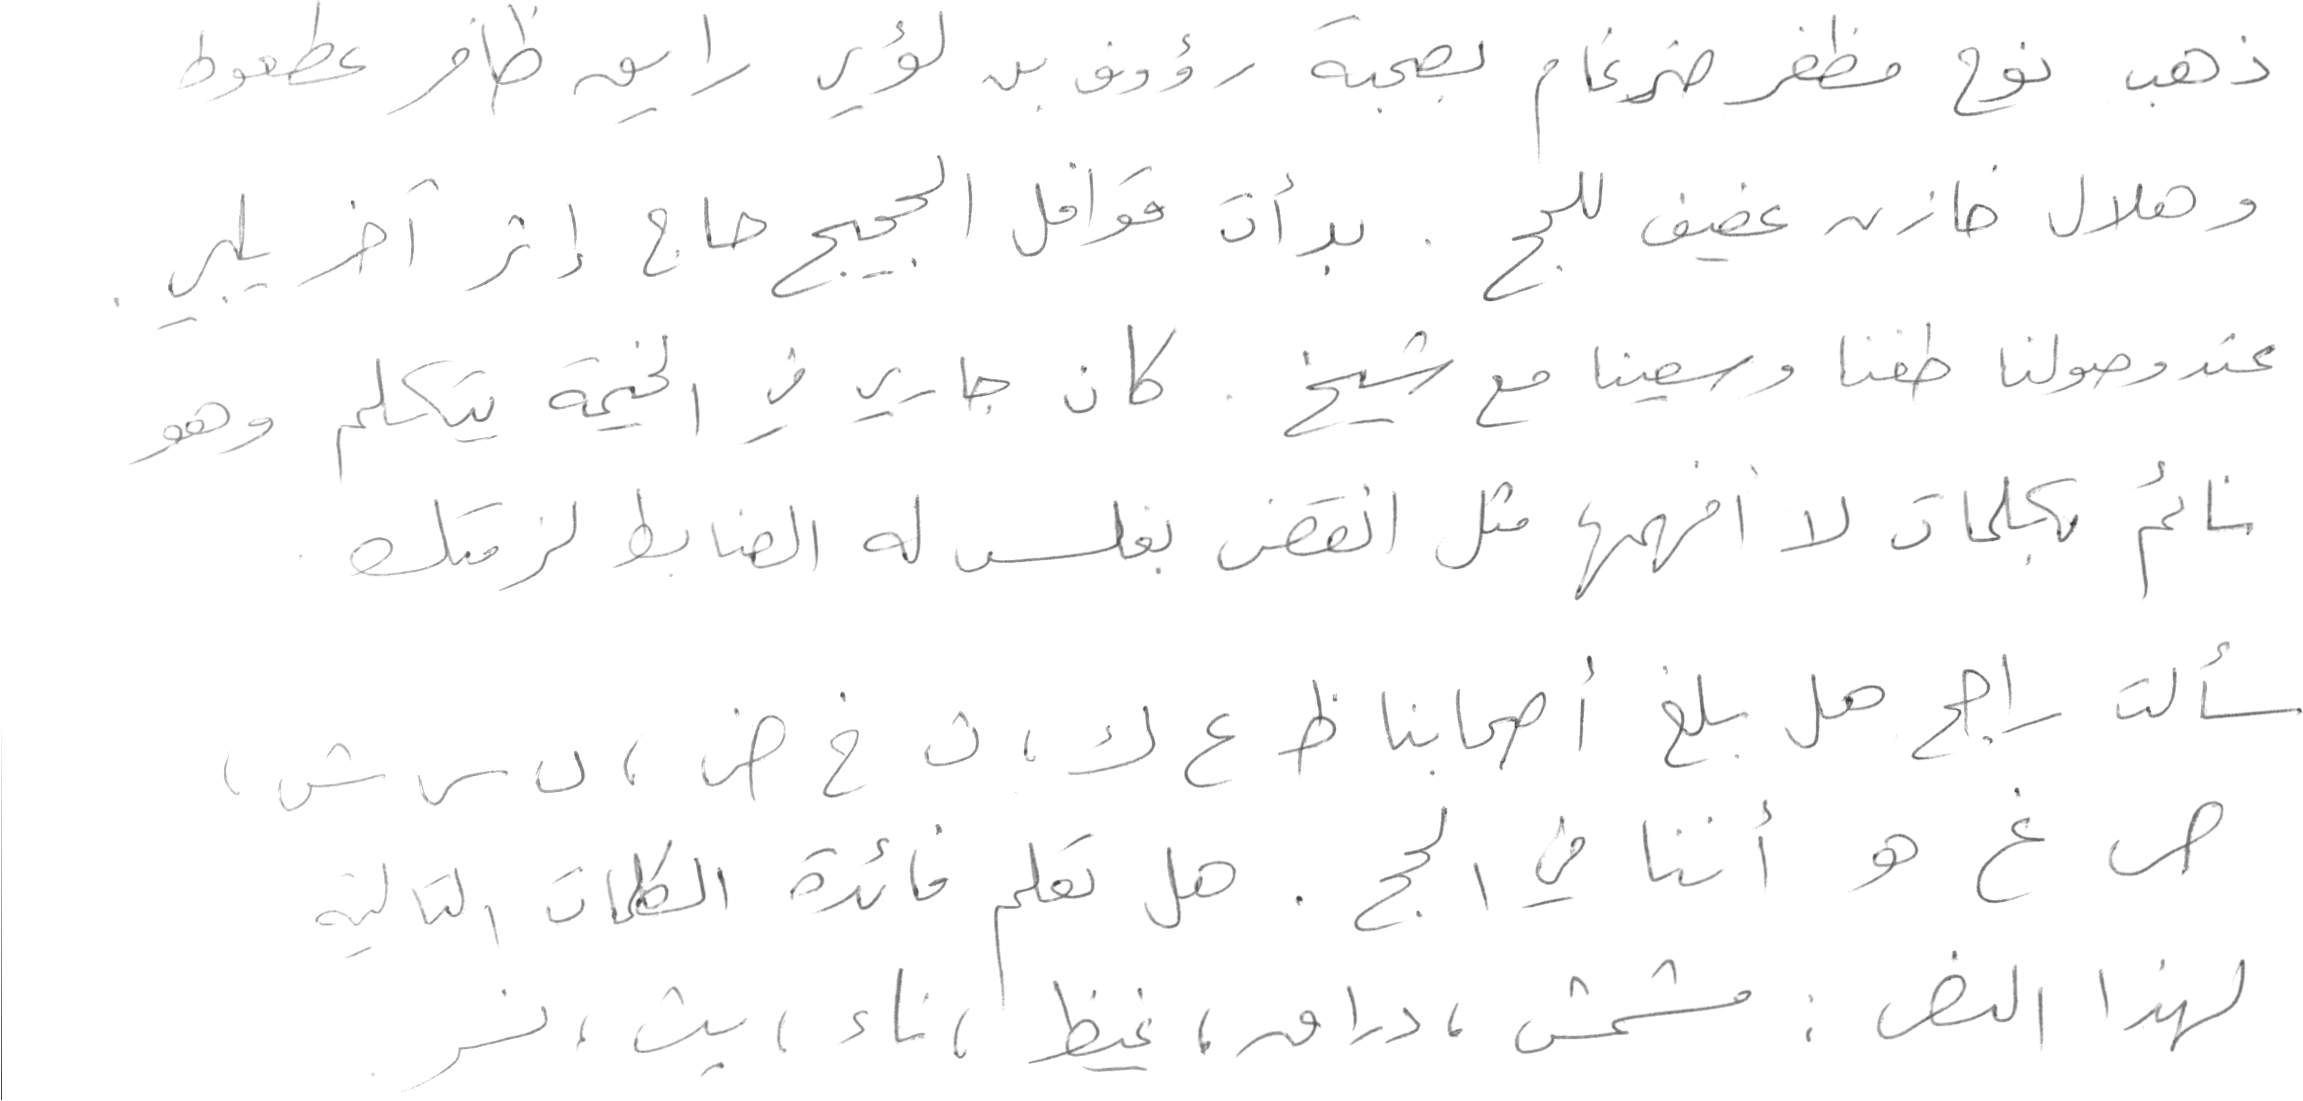 ذهب نوح مظفر ضرغام بصحبة رؤوف بن لؤي رايق ظافر عطعوط
وهلال خازن عفيف للحج . بدأت قوافل الحجيج حاج إثر آخر يلبي .
عند وصولنا طفنا وسعينا مع شيخ . كان جاري في الخيمة يتكلم وهو
نائم بكلمات لا أفهمها مثل انقض بغلس له الضابط لزمتك .
سألت راجح هل بلغ أصحابنا ظ ع ك ، ن خ ض ، ل س ش ،
ص غ هو أننا في الحج . هل تعلم فائدة الكلمات التالية
لهذا النص : مشمش ، دراق ، غيظ ، ناء ، يث ، نسر